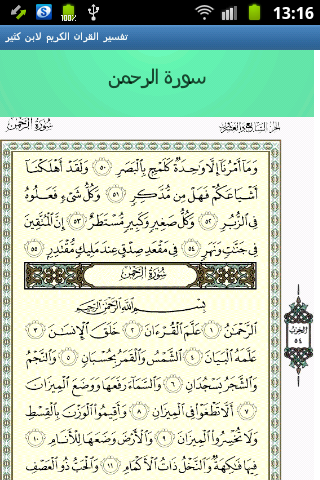 13:16
تفسير القران الكريم لابن كثير
سورة الرحمن
سُورَةُ الرَّحْمَن
الجزء السابع والعشرون
وَمَآ أَمْرُنَآ إِلَّا وَٰحِدَةٌ كَلَمْحٍۭ بِٱلْبَصَرِ ٥٠ وَلَقَدْ أَهْلَكْنَآ
أَشْيَاعَكُمْ فَهَلْ مِن مُّدَّكِرٍ ٥١ وَكُلُّ شَىْءٍ فَعَلُوهُ
فِى ٱلزُّبُرِ ٥٢ وَكُلُّ صَغِيرٍ وَكَبِيرٍ مُّسْتَطَرٌ ٥٣ إِنَّ ٱلْمُتَّقِينَ
فِى جَنَّٰتٍ وَنَهَرٍ ٥٤ فِى مَقْعَدِ صِدْقٍ عِندَ مَلِيكٍ مُّقْتَدِرٍۭ ٥٥
سُورَةُ الرَّحْمَن
بِسْمِ ٱللَّهِ ٱلرَّحْمَٰنِ ٱلرَّحِيمِ
ٱلرَّحْمَٰنُ ١ عَلَّمَ ٱلْقُرْءَانَ ٢ خَلَقَ ٱلْإِنسَٰنَ ٣
عَلَّمَهُ ٱلْبَيَانَ ٤ ٱلشَّمْسُ وَٱلْقَمَرُ بِحُسْبَانٍ ٥ وَٱلنَّجْمُ
وَٱلشَّجَرُ يَسْجُدَانِ ٦ وَٱلسَّمَآءَ رَفَعَهَا وَوَضَعَ ٱلْمِيزَانَ
٧ أَلَّا تَطْغَوْا۟ فِى ٱلْمِيزَانِ ٨ وَأَقِيمُوا۟ ٱلْوَزْنَ بِٱلْقِسْطِ
وَلَا تُخْسِرُوا۟ ٱلْمِيزَانَ ٩ وَٱلْأَرْضَ وَضَعَهَا لِلْأَنَامِ ١٠
فِيهَا فَٰكِهَةٌ وَٱلنَّخْلُ ذَاتُ ٱلْأَكْمَامِ ١١ وَٱلْحَبُّ ذُو ٱلْعَصْفِ
الحزب
٥٤